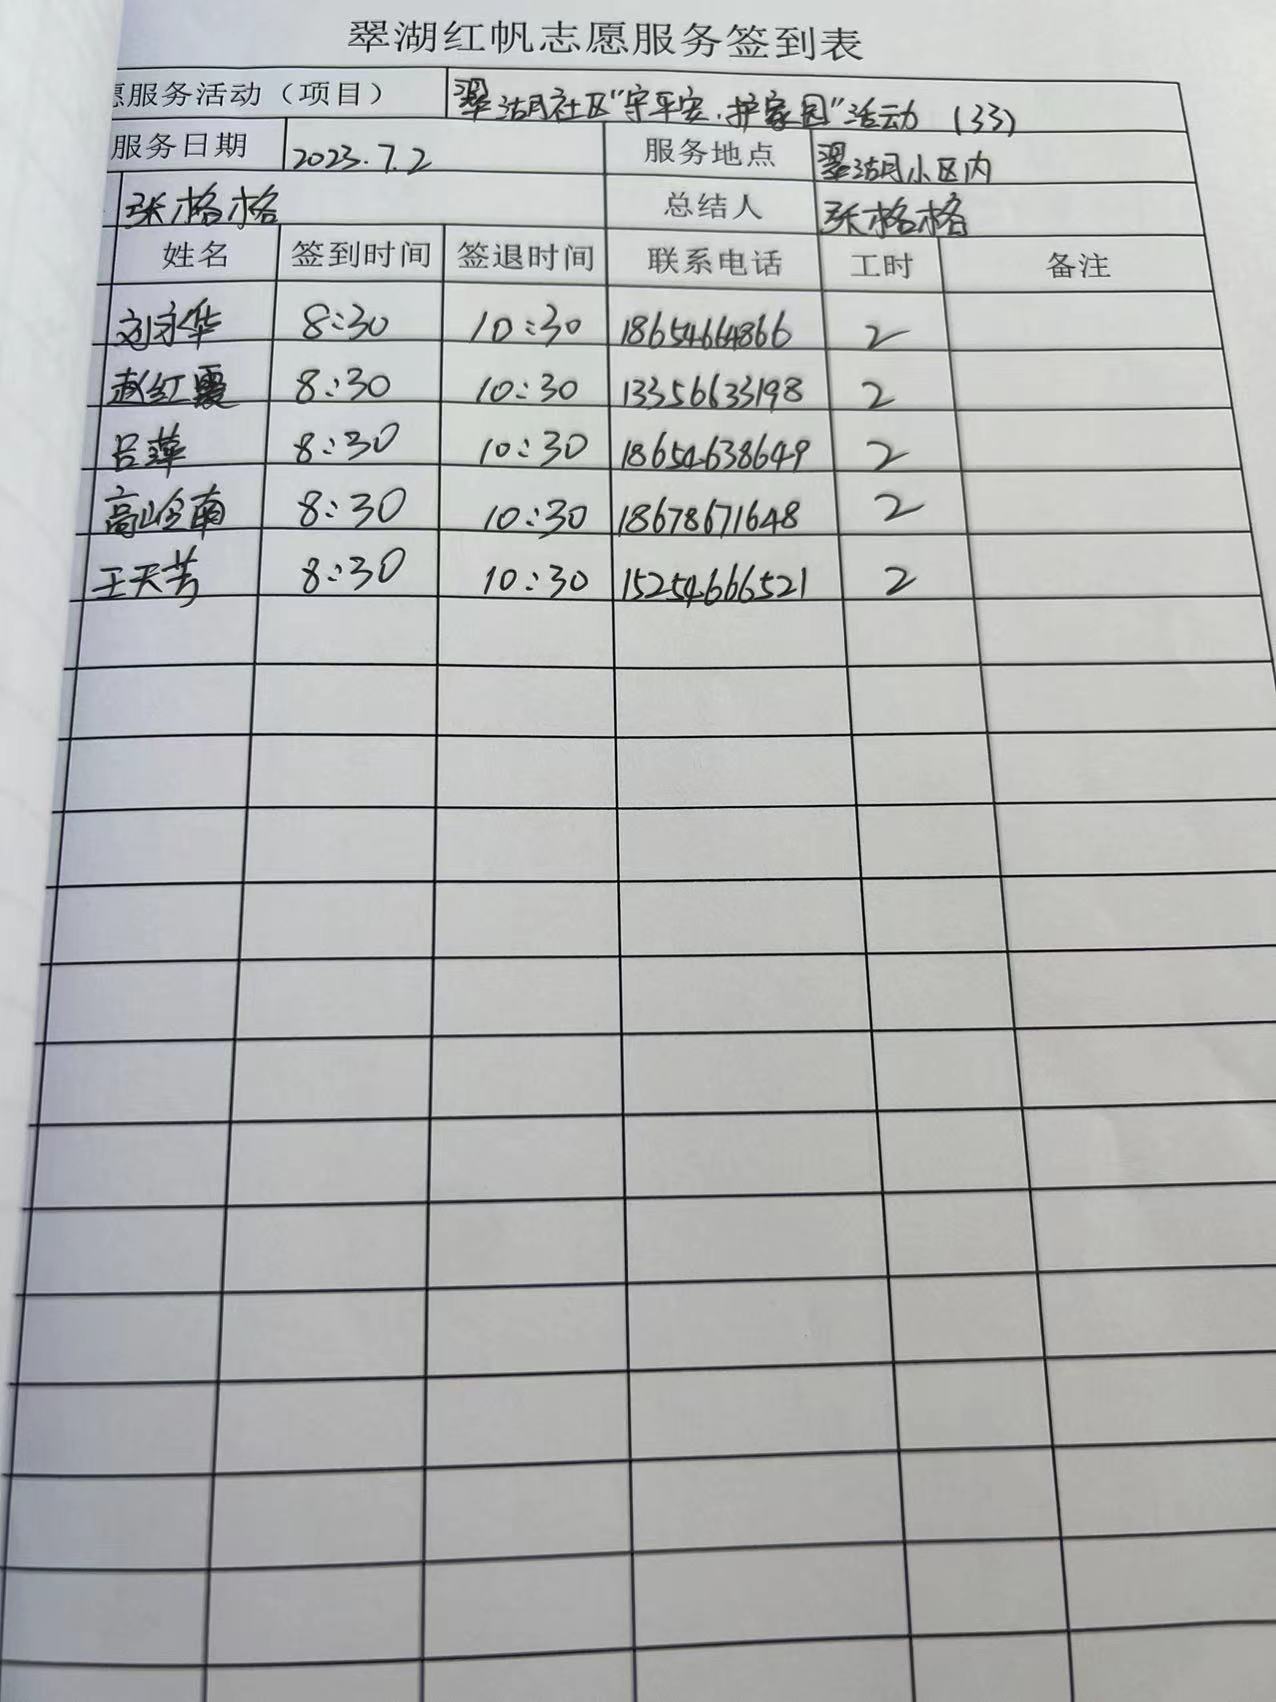 翠湖红帆志愿服务签到表
愿服务活动（项目） 翠湖社区“守平安，护家园”活动（33）
服务日期 2023.7.2 服务地点 翠湖小区内
张格格 总结人 张格格
姓名 签到时间 签退时间 联系电话 工时 备注
刘永华 8:30 10:30 18654664866 2
赵红霞 8:30 10:30 13356633198 2
吕萍 8:30 10:30 18654638649 2
高岭南 8:30 10:30 18678671648 2
王天芳 8:30 10:30 15254666521 2